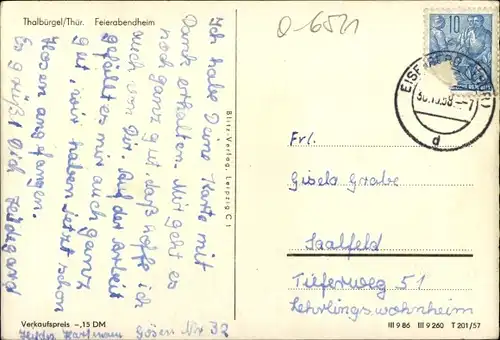 Thalbürgel/Thür. Feierabendheim
O-6521
Ich habe Deine Karte mit
Dank erhalten. Mir geht es
noch ganz gut, daß hoffe ich
auch von Dir. Auf der Arbeit
gefällt es mir auch ganz
gut, wir haben jetzt schon
Hosen angefangen.
Es grüßt Dich Hildegard
Blitz-Verlag, Leipzig C 1
10
EISENBERG (THÜR)
d
Frl.
Gisela Grabe
Saalfeld
Tieferweg 51
Lehrlingswohnheim
Verkaufspreis -,15 DM
III 9 86 III 9 260 T 201/57
Hartmann Gösen Nr 32